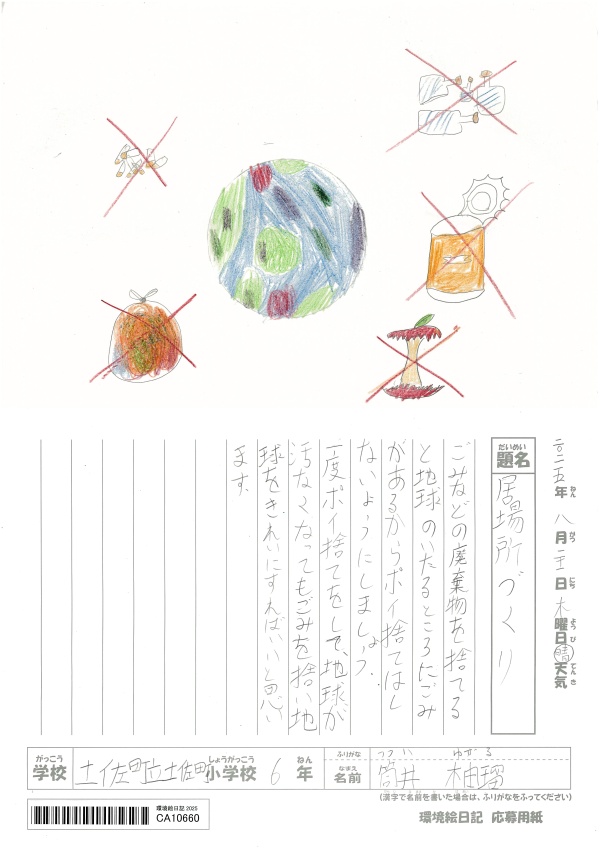 二〇二五年八月二一日木曜日晴天気
だいめい
題名
居場所づくり
ごみなどの廃棄物を捨てる
と地球のいたるところにごみ
があるからポイ捨てはし
ないようにしましょう。
一度ポイ捨てをして、地球が
汚なくなってもごみを捨い地
球をきれいにすればいいと思い
ます。
がっこう しょうがっこう ねん
学校 土佐町立土佐町小学校 6年
ふりがな つつい ゆずる
なまえ
名前 筒井 柚瑠
(漢字で名前を書いた場合は、ふりがなをふってください)
環境絵日記2025
CA10660
環境絵日記 応募用紙